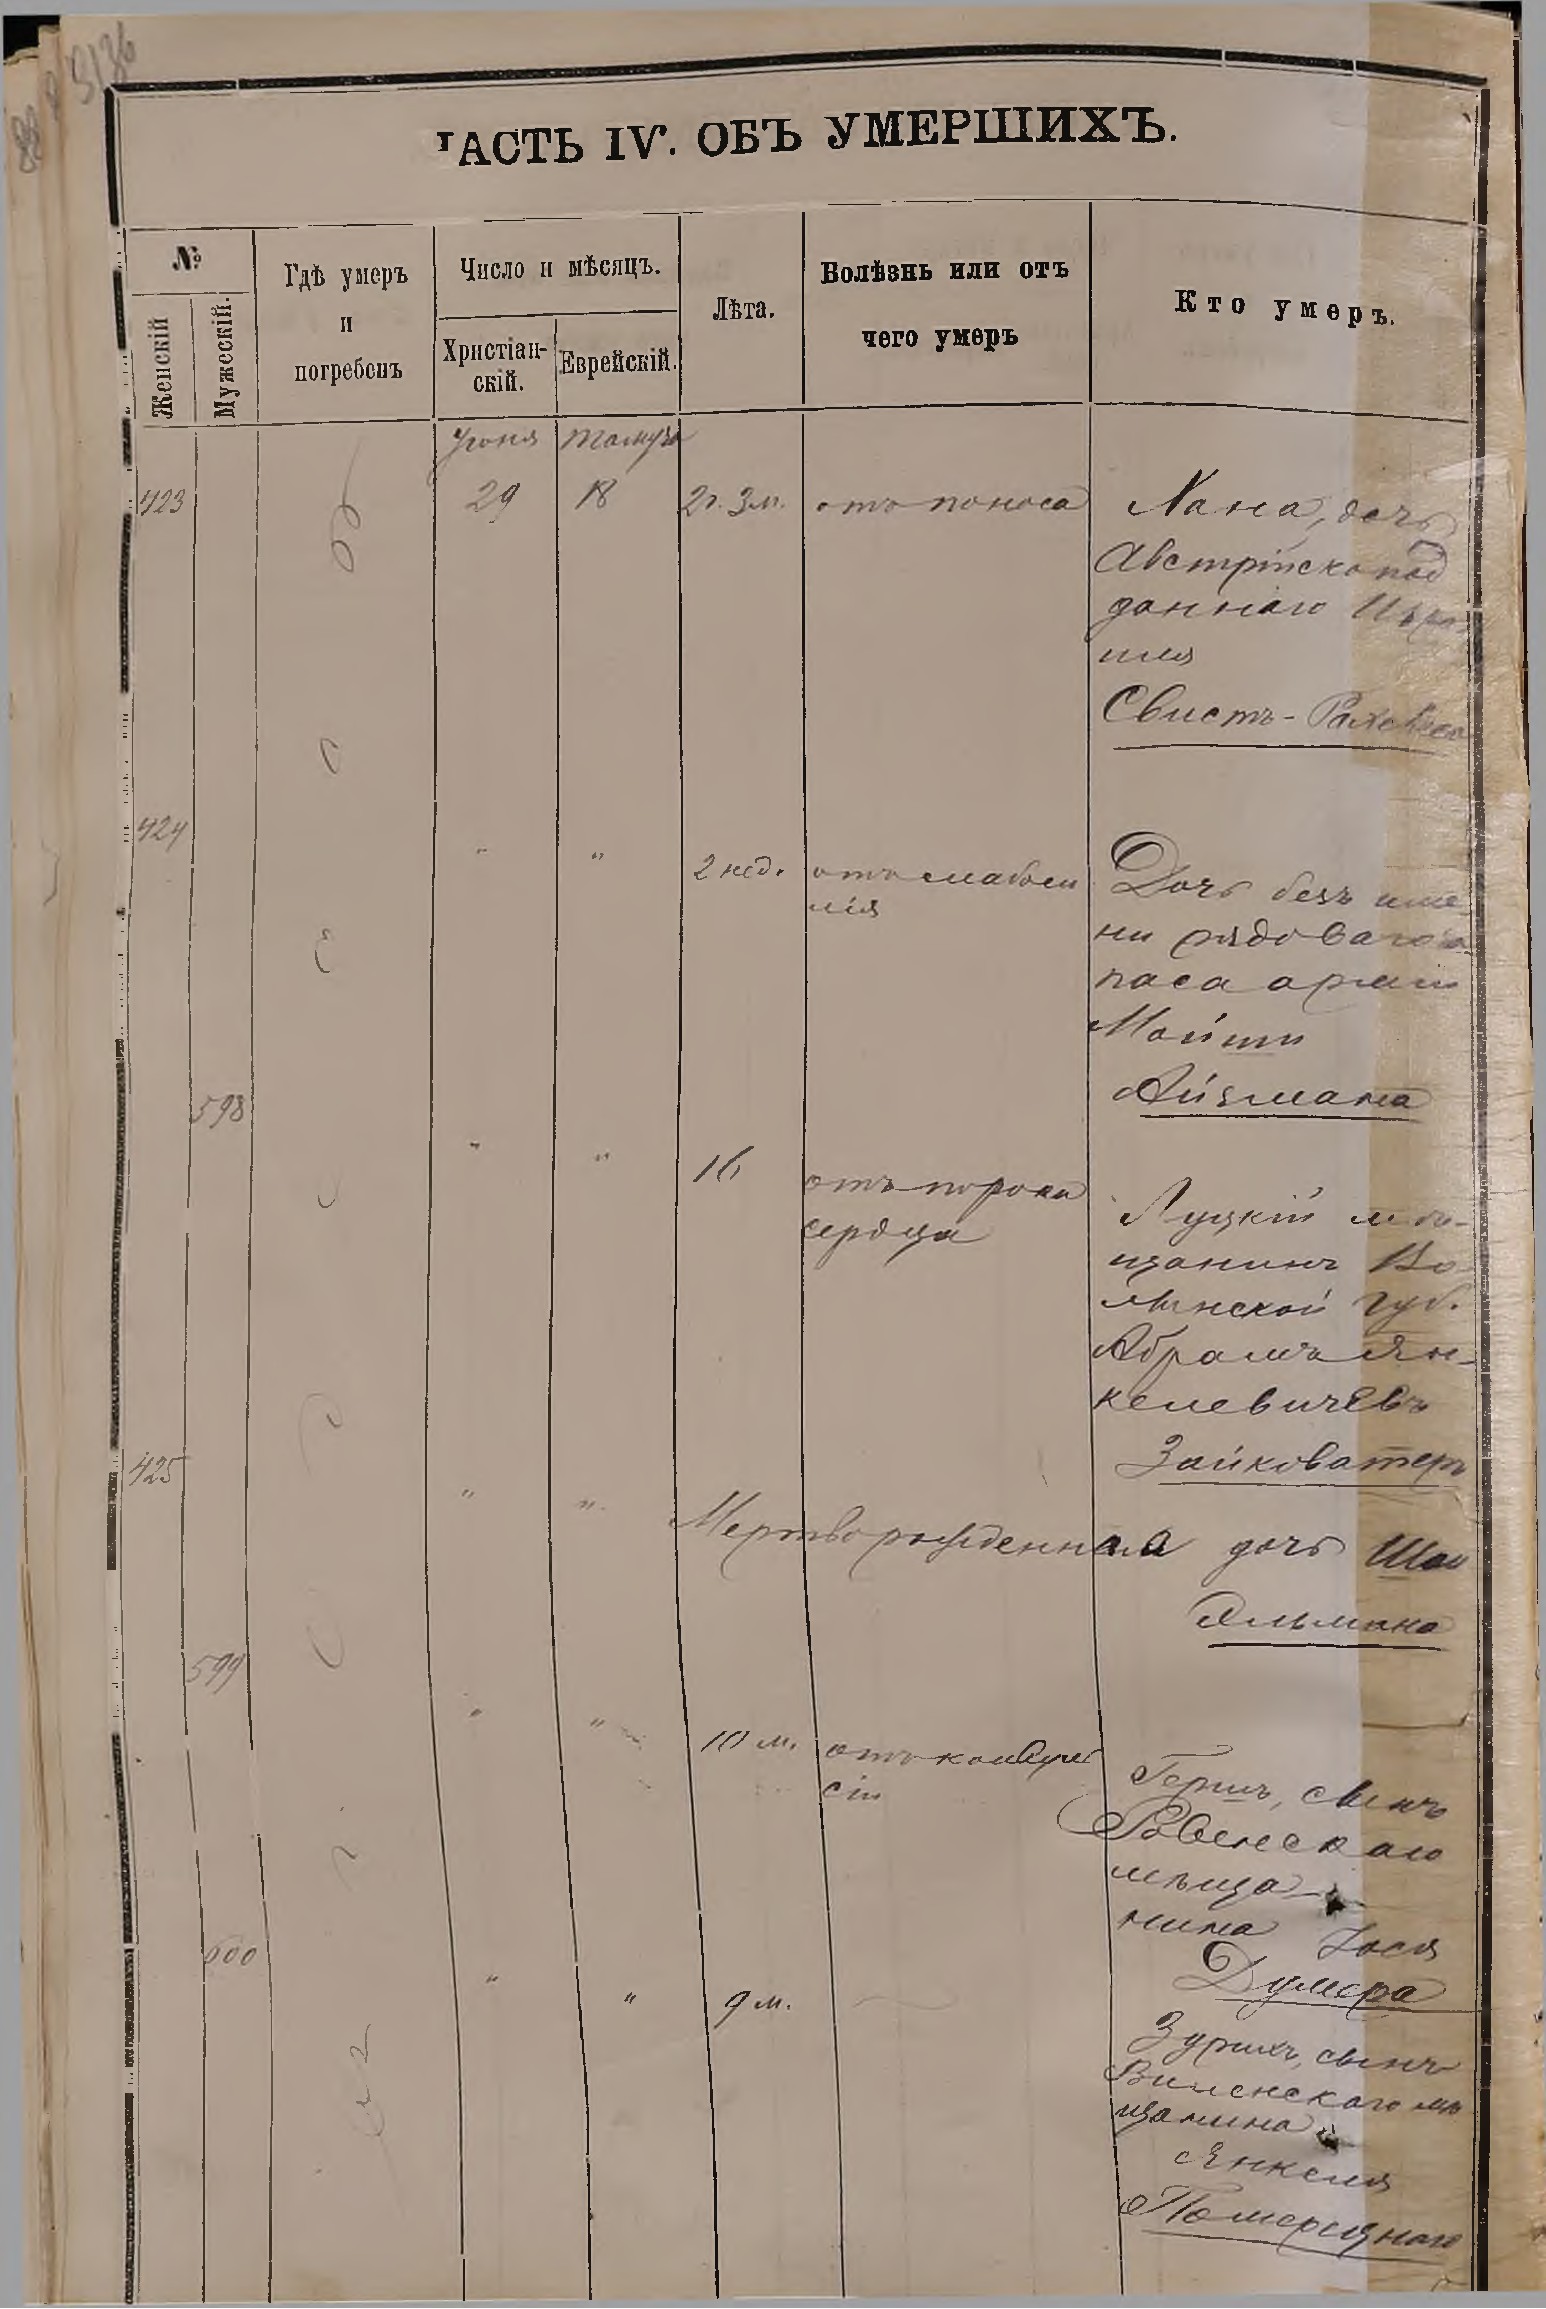 ЧАСТЬ IV. ОБЪ УМЕРШИХЪ.
№
Женскій
Мужескій.
Гдѣ умеръ
и
погребенъ
Число и мѣсяцъ.
Христіан-
скій.
Еврейскій.
Лѣта.
Болѣзнь или отъ
чего умеръ
Кто умеръ.
Іюня Тамуза
423 29 18 2 г. 3 м. отъ поноса Хана, дочь
Австрійско под
даннаго Изра-
иля
Свистъ-
424 " " 2 нед. отъ слабоси
лія
Дочь безъ име
ни рядового за
паса арміи
Мойши
Айзмана
598 " " 16 отъ порока
сердца
Луцкій мѣ-
щанинъ Во
лынской губ.
Абрамъ Ян-
келевичевъ
Зайковатеръ
425 " " Мертворожденная дочь Шаи
Ельмана
599 " " 10 м. отъ конвуль
сіи
Гершъ, сынъ
Ровенскаго
мѣща-
нина Іося
Думера
600 " " 9 м.
сынъ
Виленскаго мѣ
щанина
Янкеля
Померецнаго